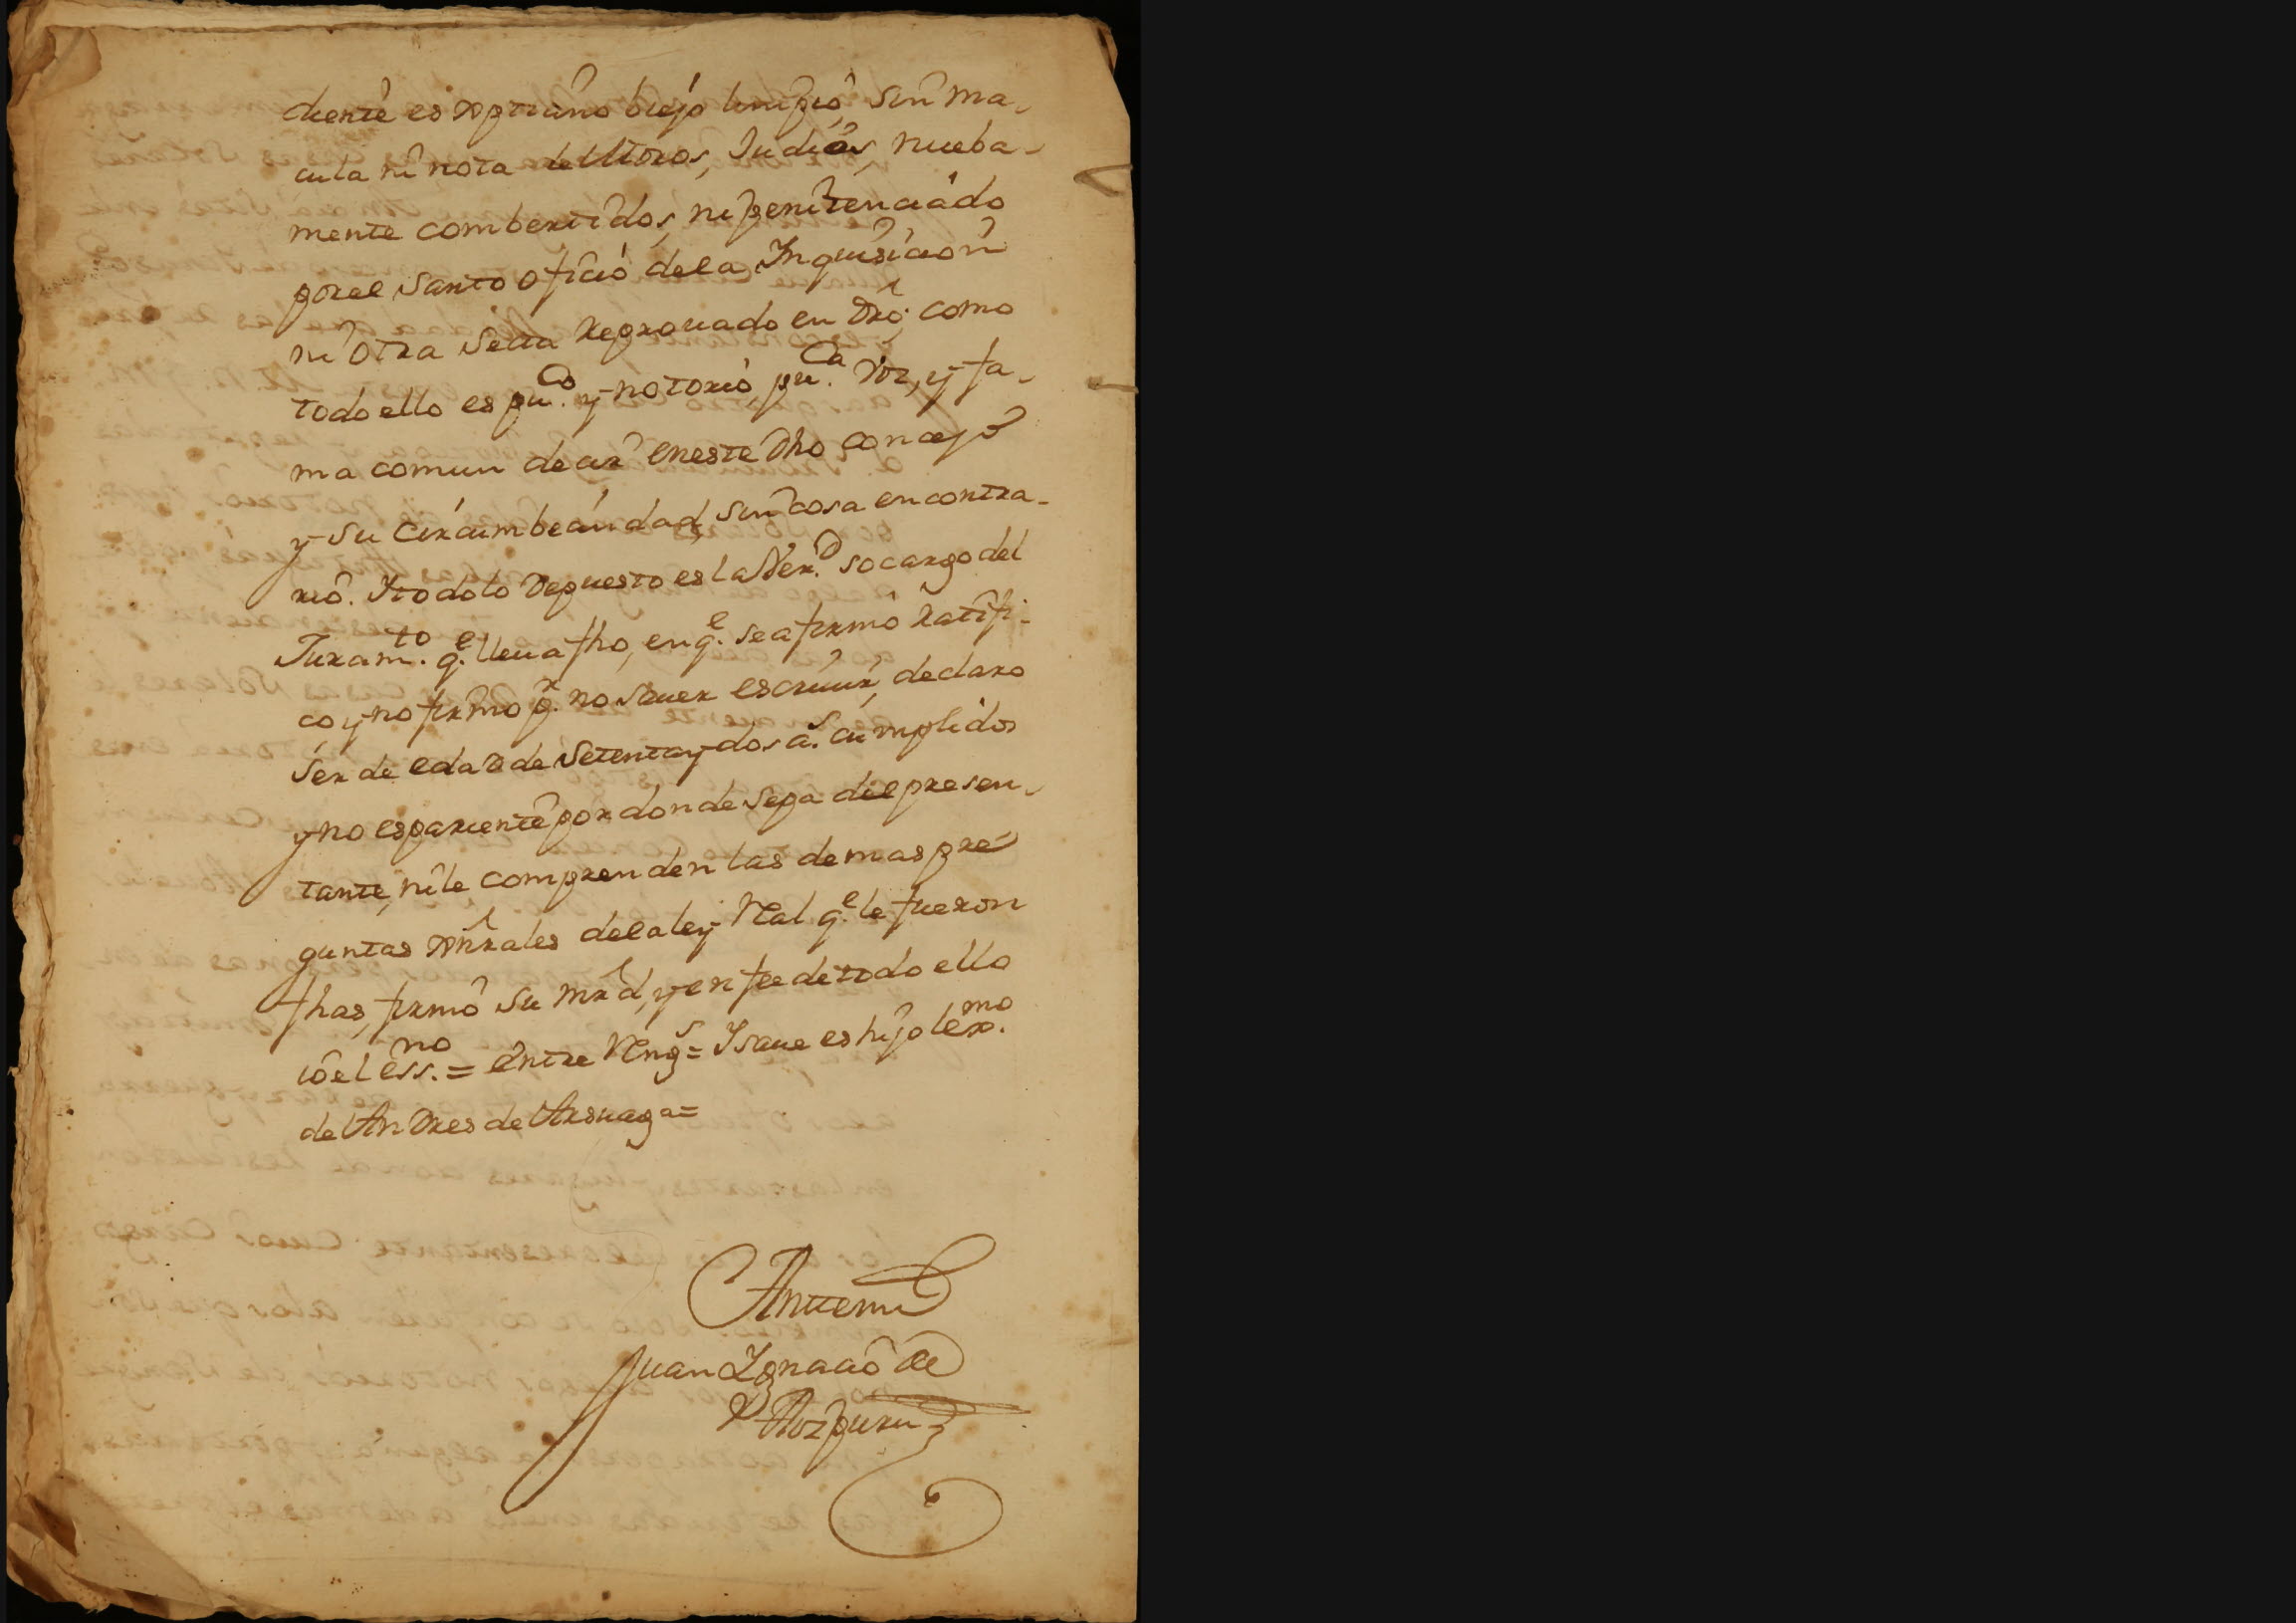 diente es xptiano biejo limpio, sin ma-
cula ni nota de Moros, Judios, nueba-
mente combertidos, ni penitenciado
por el Santo oficio dela Inquisicion
ni otra secta Reprouado en dro; como
todo ello es pu.co y notorio, pu.ca voz, y fa-
ma comun decir en este dho concejo
y su circumbecindad, sin cosa en contra-
rio. Y todo lo depuesto es la Ver.d so cargo del
Juram.to q.e lleua fho, en q.e se afirmó ratifi-
co, y no firmo p.r no sauer escriuir, declaro
ser de edad de Setenta y dos a.s cumplidos
y no es pariente por donde sepa del presen-
tante, ni le comprenden las demas pre-
guntas Gnrales dela ley Real q.e le fueron
fhas, firmó su mrd, y en fee de todo ello
io el ess.no = entre Reng.s = Y saue es hijo lexmo.
de Andres de Arsuaga =
Antemi
Juan Ygnacio de
Aozpuru